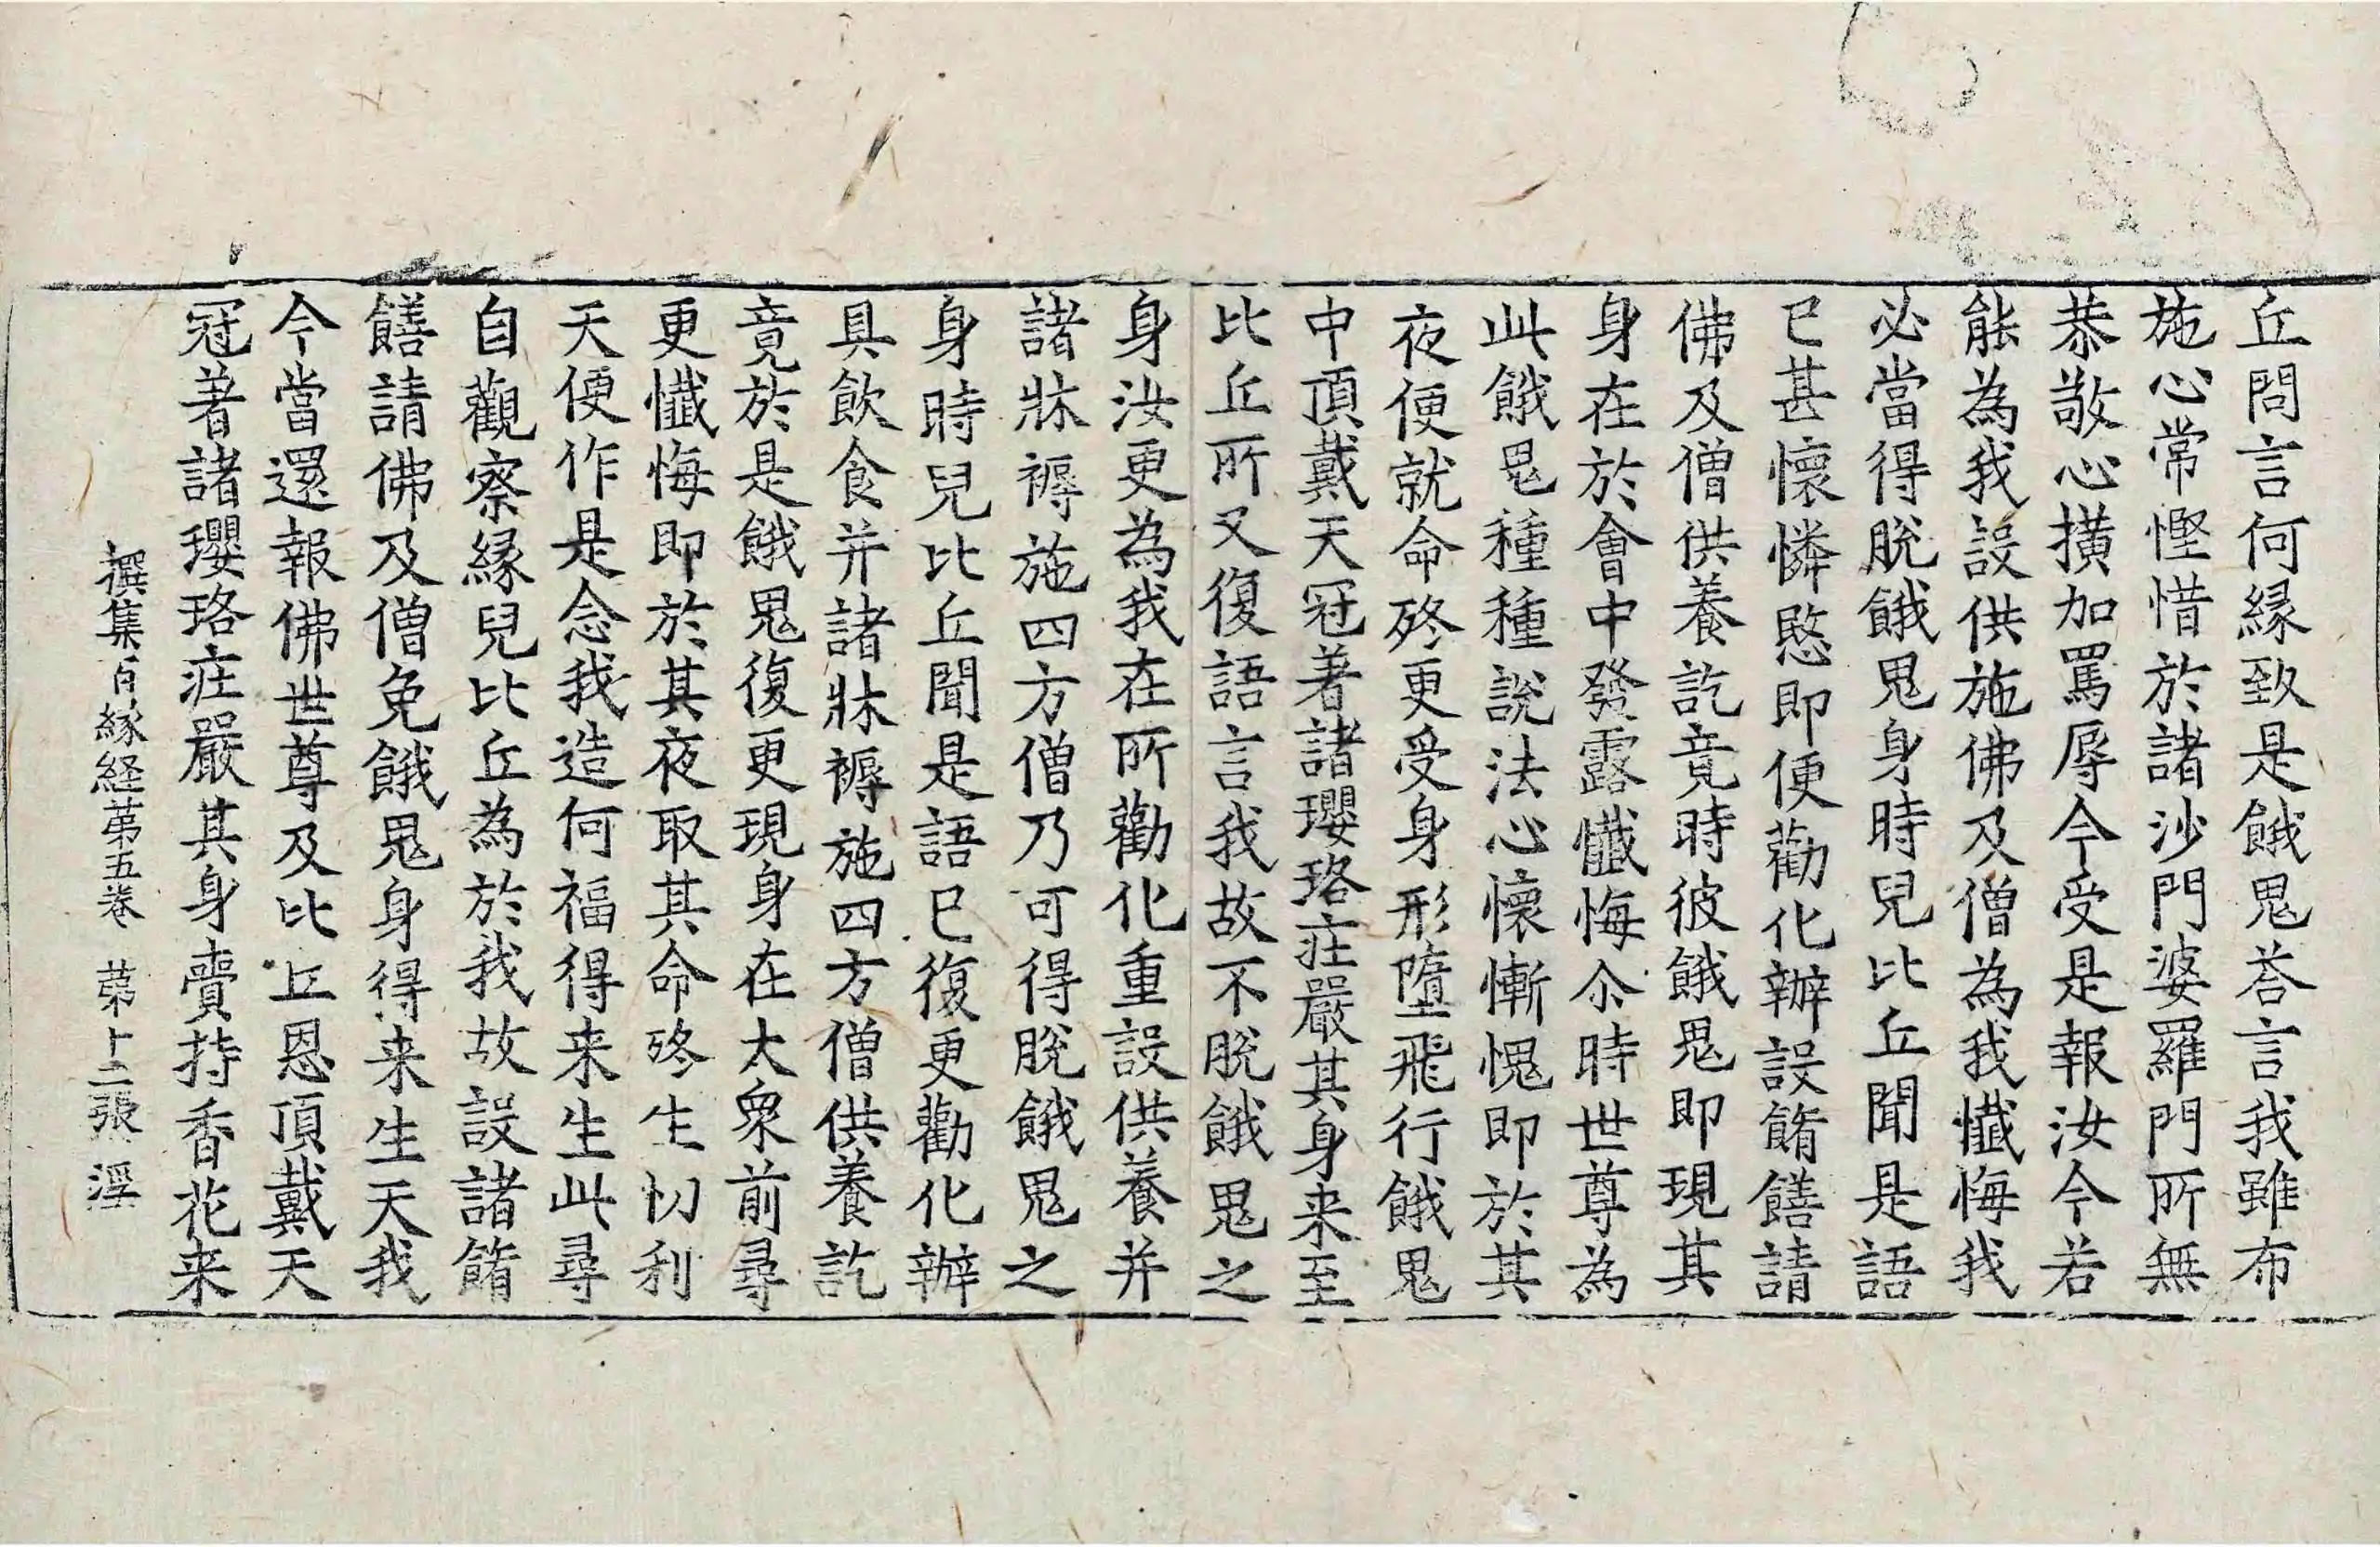 丘問言何緣致是餓鬼荅言我雖布
施心常慳惜於諸沙門婆羅門所無
恭敬心撗加罵辱今受是報汝今若
能為我設供施佛及僧為我懺悔我
必當得脫餓鬼身時兒比丘聞是語
已甚懷憐愍即便勸化辦設餚饍請
佛及僧供養訖竟時彼餓鬼即現其
身在於會中發露懺悔尒時世尊為
此餓鬼種種說法心懷慚愧即於其
夜便就命終更受身形墮飛行餓鬼
中頂戴天冠著諸瓔珞庄嚴其身来至
比丘所又復語言我故不脫餓鬼之
身汝更為我在所勸化重設供養并
諸牀褥施四方僧乃可得脫餓鬼之
身時兒比丘聞是語已復更勸化辦
具飲食并諸牀褥施四方僧供養訖
竟於是餓鬼復更現身在大衆前尋
更懺悔即於其夜取其命終生忉利
天便作是念我造何福得来生此尋
自觀察緣兒比丘為於我故設諸餚
饍請佛及僧免餓鬼身得来生天我
今當還報佛世尊及比丘恩頂戴天
冠著諸瓔珞庄嚴其身賷持香花来
撰集百緣経苐五卷 苐十二張 淫